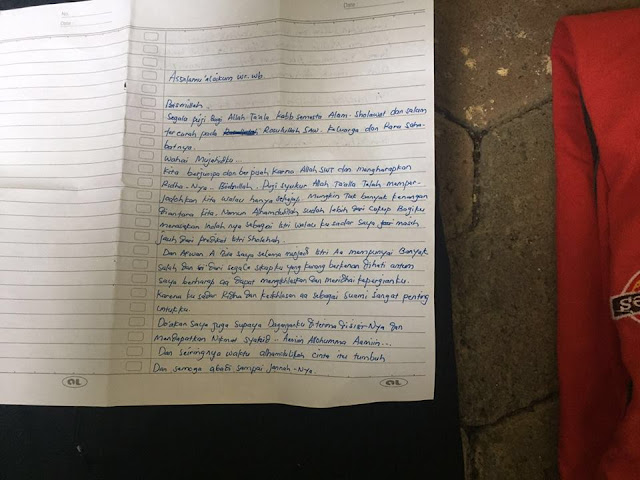 No.
Date
Date
Assalamu'alaikum wr. wb.
Bismillah.
Segala puji Bagi Allah Ta'ala Rabb semesta Alam. Sholawat dan salam
ter curah pada Rosulullah SAW. Keluarga dan Para Saha-
batnya.
Wahai Mujahidku...
Kita berjumpa dan berpisah karna Allah SWT dan mengharapkan
Ridha-Nya. Bismillah, Puji syukur Allah Ta'alla Telah memper-
jodohkan kita walau hanya Mungkin Tak banyak kenangan
diantara kita. Namun Alhamdulillah sudah lebih dari cukup Bagiku
merasakan indah nya sebagai Istri walau ku sadar Saya masih
jauh dari predikat Istri Sholehah.
Dan A jika saya selama menjadi Istri Aa mempunyai Banyak
Salah dan dari segala sikapku yang kurang berkenan dihati antum
Saya berharap aa dapat mengikhlaskan dan meridhai kepergianku.
Karena ku sadar Ridha dan keikhlasan aa sebagai Suami sangat penting
untukku.
Do'akan Saya juga Supaya Daganganku diterima disisi-Nya dan
Mendapatkan Nikmat Syahid.. Aamiin Allohumma Aamiin...
Dan Seiringnya waktu alhamdulillah cinta itu tumbuh
Dan semoga abadi sampai Jannah-Nya.